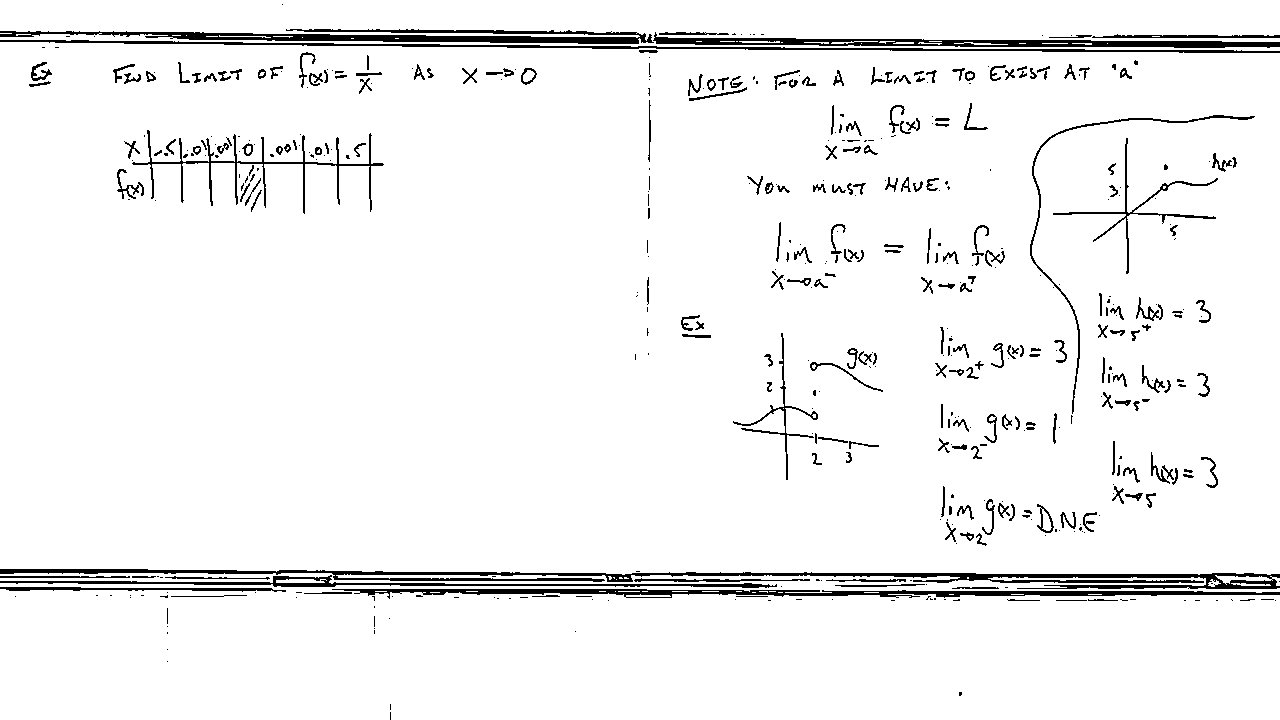 Ex FIND LIMIT OF f(x) = 1/x AS x → 0
x -.5 -.01 -.001 0 .001 .01 .5
f(x)
NOTE: FOR A LIMIT TO EXIST AT "a"
lim x→a f(x) = L
YOU MUST HAVE:
lim x→a⁻ f(x) = lim x→a⁺ f(x)
Ex
g(x)
3
2
1
2 3
lim x→2⁺ g(x) = 3
lim x→2⁻ g(x) = 1
lim x→2 g(x) = D.N.E
h(x)
5
3
5
lim x→5⁺ h(x) = 3
lim x→5⁻ h(x) = 3
lim x→5 h(x) = 3